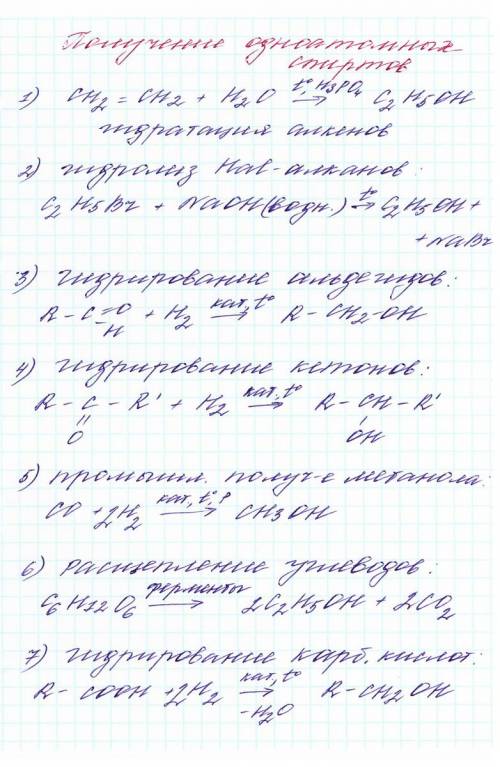 Получение одноатомных
спиртов
1) CH2 = CH2 + H2O t°, H3PO4 → C2H5OH
гидратация алкенов
2) гидролиз Hal-алканов:
C2H5Br + NaOH(водн.) t° → C2H5OH +
+ NaBr
3) гидрирование альдегидов:
R - C =O + H2 кат, t° → R - CH2-OH
- H
4) гидрирование кетонов:
R - C - R' + H2 кат, t° → R - CH - R'
O OH
5) промышл. получ-е метанола:
CO + 2H2 кат, t°, P → CH3OH
6) расщепление углеводов:
C6H12O6 ферменты → 2C2H5OH + 2CO2
7) гидрирование карб. кислот:
R - COOH + 2H2 кат, t° → R - CH2OH
-H2O